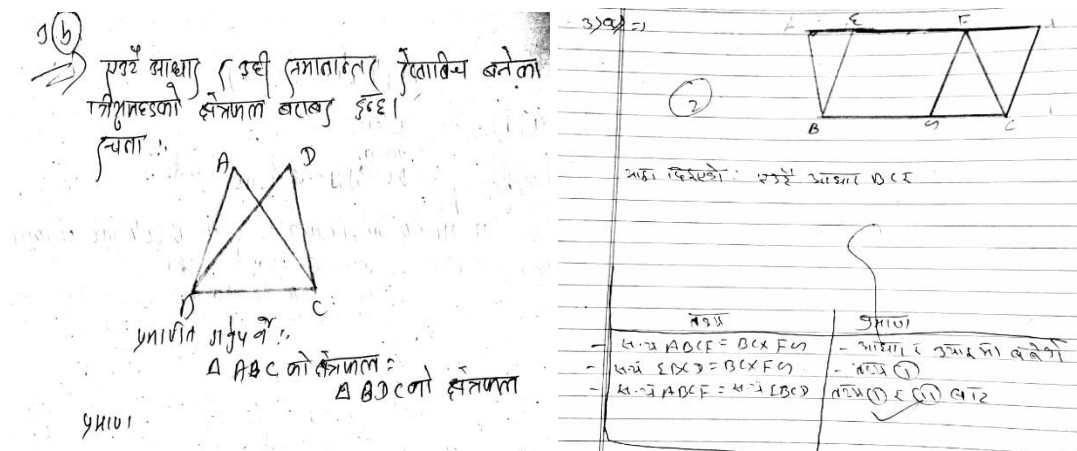 3 (b)
एउटै आधार र उही समानान्तर रेखाबिच बनेका
त्रिभुजहरुको क्षेत्रफल बराबर हुन्छ।
रचना :
A D
B C
प्रमाणित गर्नुपर्ने :
Δ ABC को क्षेत्रफल =
Δ BDC को क्षेत्रफल
प्रमाण
3) a) ⇒
E F
2
B G C
यहाँ दिइएको : एउटै आधार BC र
तथ्य प्रमाण
- ABCF = BC × FG - आधार र
- = BC × FG - तथ्य (i)
- ABCF = EBCD तथ्य (i) र (ii) बाट